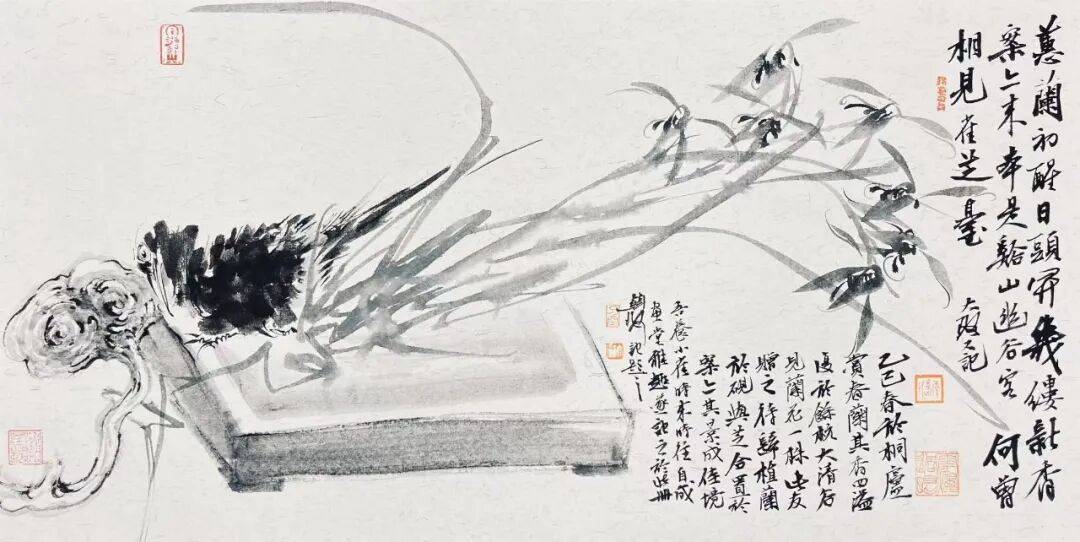 蕙蘭初醒日頭開幾縷新香
案上来本是谿山幽谷客何曾
相見雀芝臺
乙巳春於桐廬
賞春蘭其香四溢
復於餘杭大清谷
見蘭花一株
贈之待辭植蘭
於硯與芝合置於
案上其景成佳境
吾齋小雀時来時往自成
畫堂雅趣遂記之於此冊